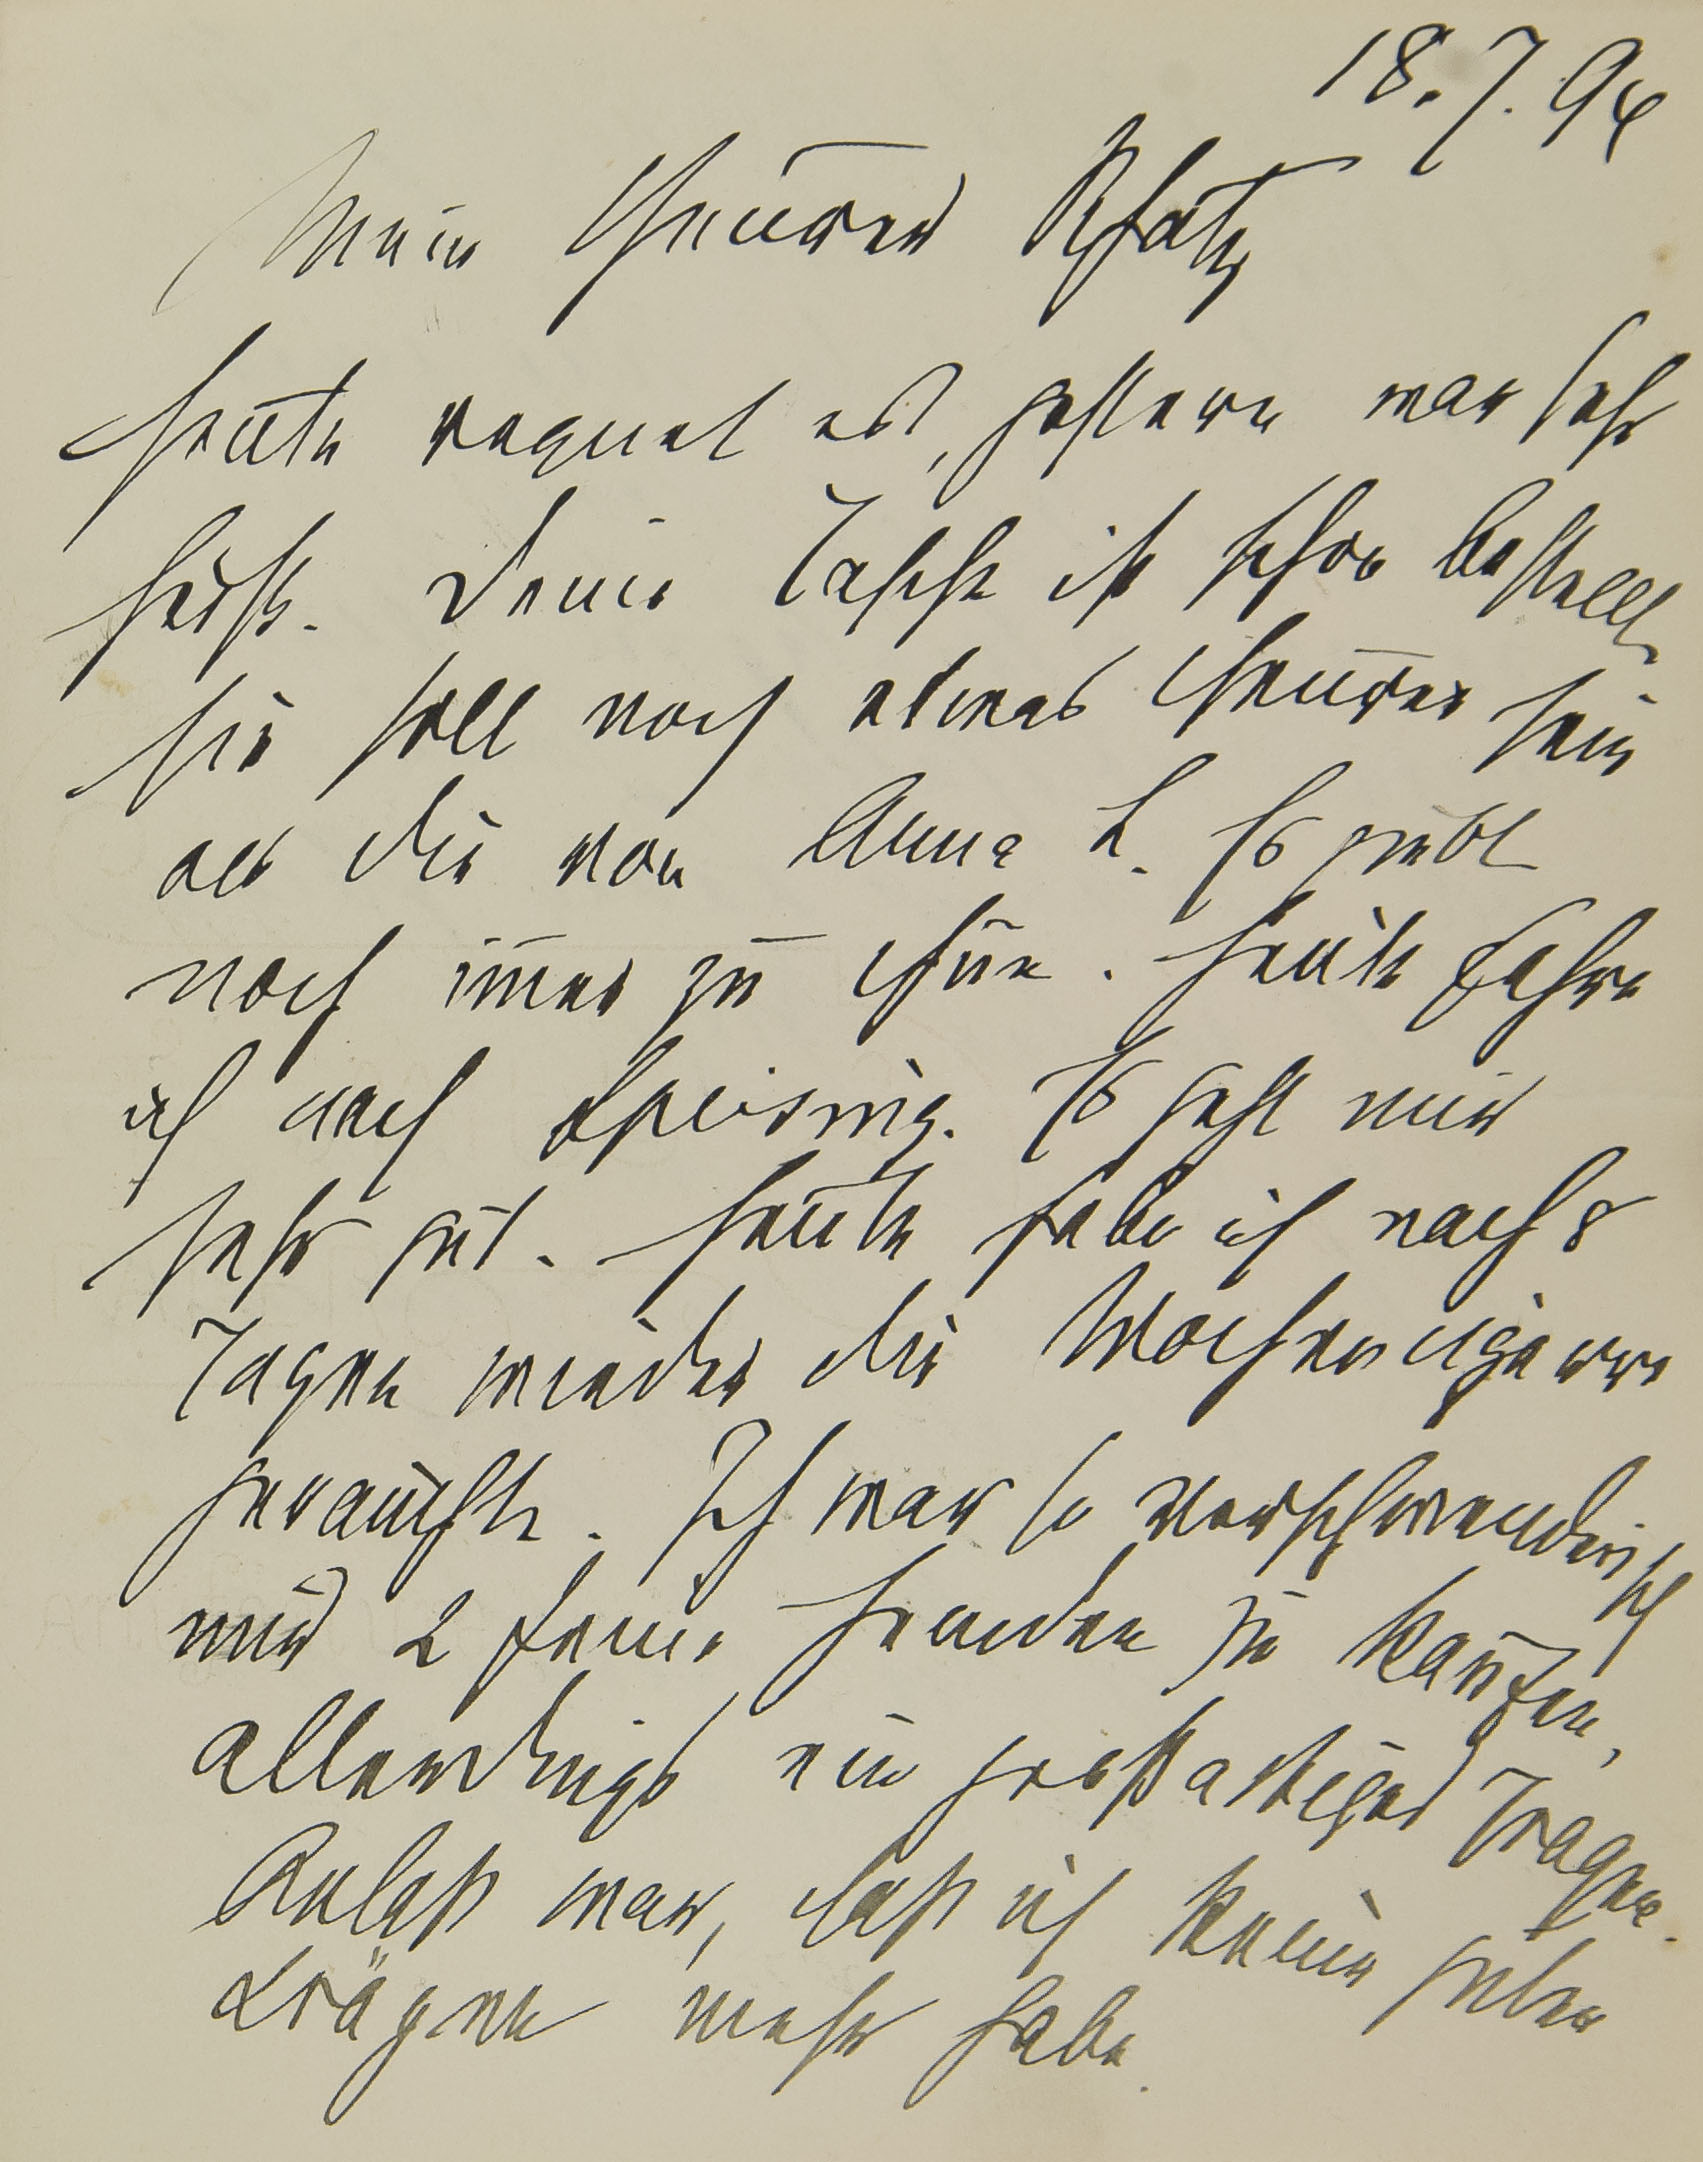 18.7.94
Mein theurer Schatz
Heute regnet es, gestern war sehr
heiß. Deine Tasche ist schon bestellt
sie soll noch etwas theurer sein
als die von Anna L. Es giebt
noch im̅er zu thun. Heute fahre
ich nach Speising. Es geht mir
sehr gut. Heute habe ich nach 8
Tagen wieder die Wochencigarre
geraucht. Ich war so verschwenderisch
mir 2 feine Hemden zu kaufen,
allerdings ein großartiger
Anlaß war, daß ich keine guten
Krägen mehr habe.